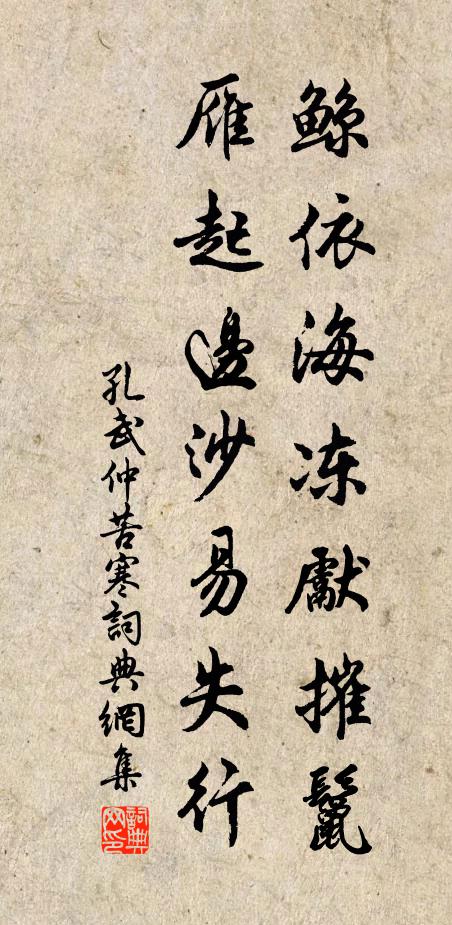 鲸依海冻献摧鬣
雁起邊沙易失行
孔武仲苦寒詞典網集
詞典
网印